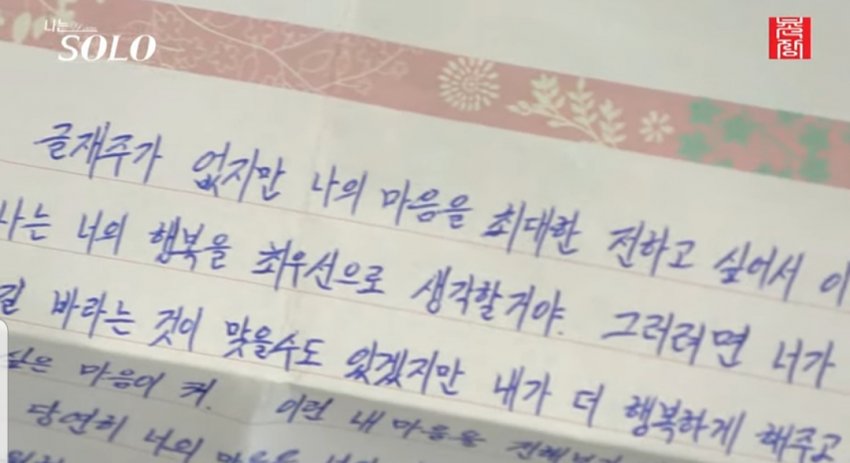 나는
SOLO
글재주가 없지만 나의 마음을 최대한 전하고 싶어서 이
나는 너의 행복을 최우선으로 생각할거야. 그러려면 너가
길 바라는 것이 맞을수도 있겠지만 내가 더 행복하게 해주고
싶은 마음이 커. 이런 내 마음을
당연히 너의 마음을